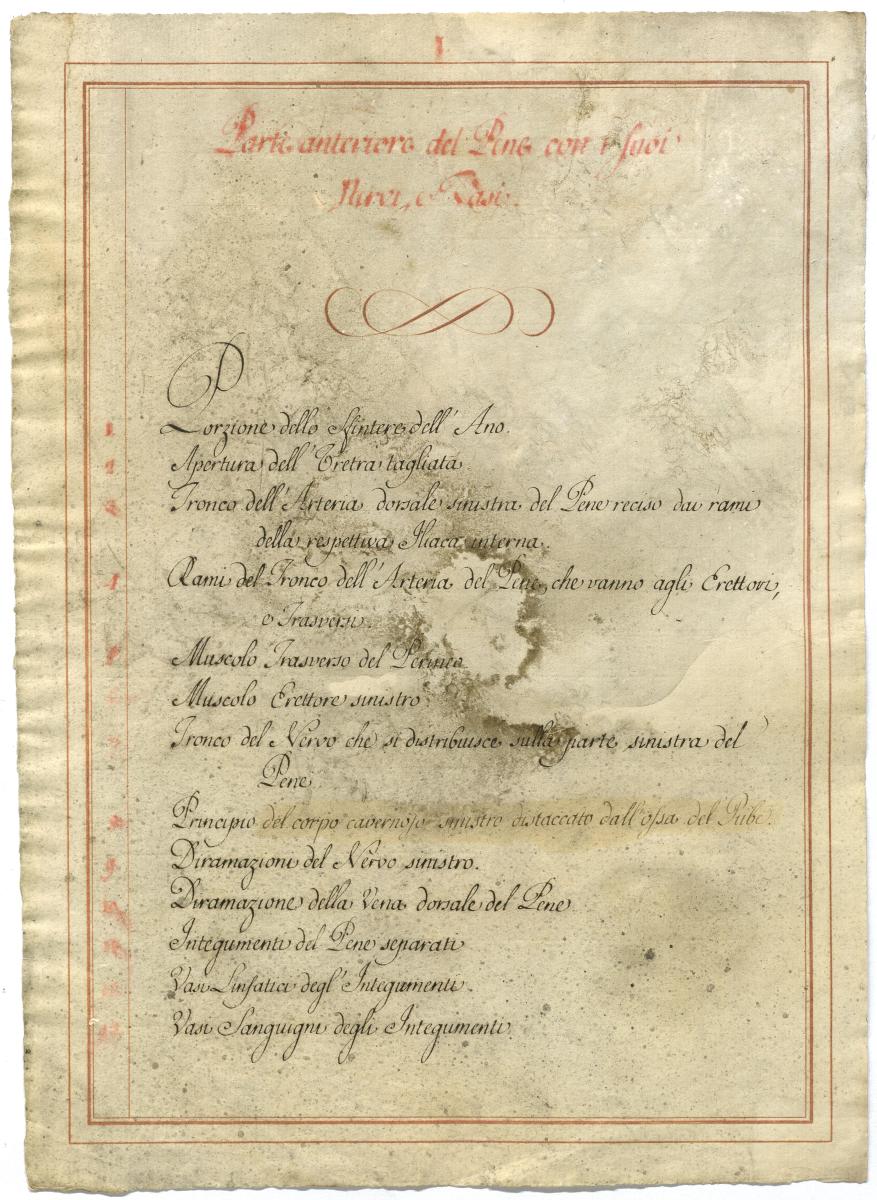 1
Parte anteriore del Pene con i suoi
Nervi, e Vasi.
1 Porzione dello Sfintere dell' Ano.
2 Apertura dell' Uretra tagliata
3 Tronco dell' Arteria dorsale sinistra del Pene reciso dai rami
della respettiva Iliaca interna.
4 Rami del Tronco dell' Arteria del Pene che vanno agli Erettori,
e Trasversi.
Muscolo Trasverso del Perineo
Muscolo Erettore sinistro
Tronco del Nervo che si distribuisce sulla parte sinistra del
Pene
Principio del corpo cavernoso sinistro distaccato dall' ossa del Pube.
9 Diramazioni del Nervo sinistro.
Diramazione della Vena dorsale del Pene
Integumenti del Pene separati
Vasi Linfatici degl' Integumenti.
Vasi Sanguigni degli Integumenti